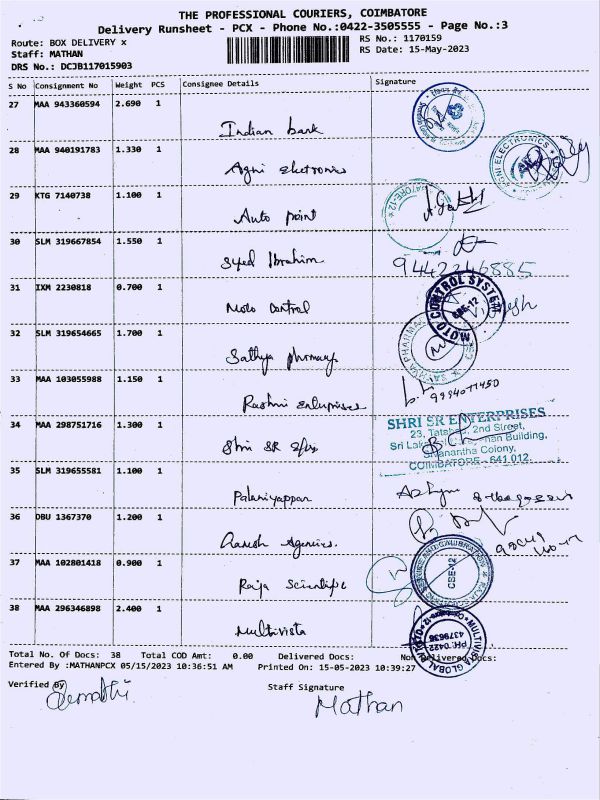 THE PROFESSIONAL COURIERS, COIMBATORE
Delivery Runsheet - PCX - Phone No.:0422-3505555 - Page No.:3
Route: BOX DELIVERY x
RS No.: 1170159
Staff: MATHAN
RS Date: 15-May-2023
DRS No.: DCJB117015903
S No Consignment No Weight PCS Consignee Details Signature
27 MAA 943360594 2.690 1
Indian bank
28 MAA 940191783 1.330 1
Agni electronics
AGNI ELECTRONICS
29 KTG 7140738 1.100 1
Auto point
30 SLM 319667854 1.550 1
Syed Ibrahim
9442246885
31 IXM 2230818 0.700 1
Moto Control
MOTO CONTROL SYSTEM
CBE-12
32 SLM 319654665 1.700 1
Sathya phormacy
33 MAA 103055988 1.150 1
Rashmi Enterprises
34 MAA 298751716 1.300 1
Shri SR
SHRI SR ENTERPRISES
23, 2nd Street,
Building,
Colony,
COIMBATORE - 641 012.
35 SLM 319655581 1.100 1
Palaniyappan
36 DBU 1367370 1.200 1
Agencies.
37 MAA 102801418 0.900 1
Raja Scientific
CBE-12
38 MAA 296346898 2.400 1
Multivista
MULTIVISTA GLOBAL
PH: 0422
4379636
Total No. Of Docs: 38 Total COD Amt: 0.00 Delivered Docs: Non Delivered Docs:
Entered By :MATHANPCX 05/15/2023 10:36:51 AM Printed On: 15-05-2023 10:39:27
Verified By
Staff Signature
Mathan